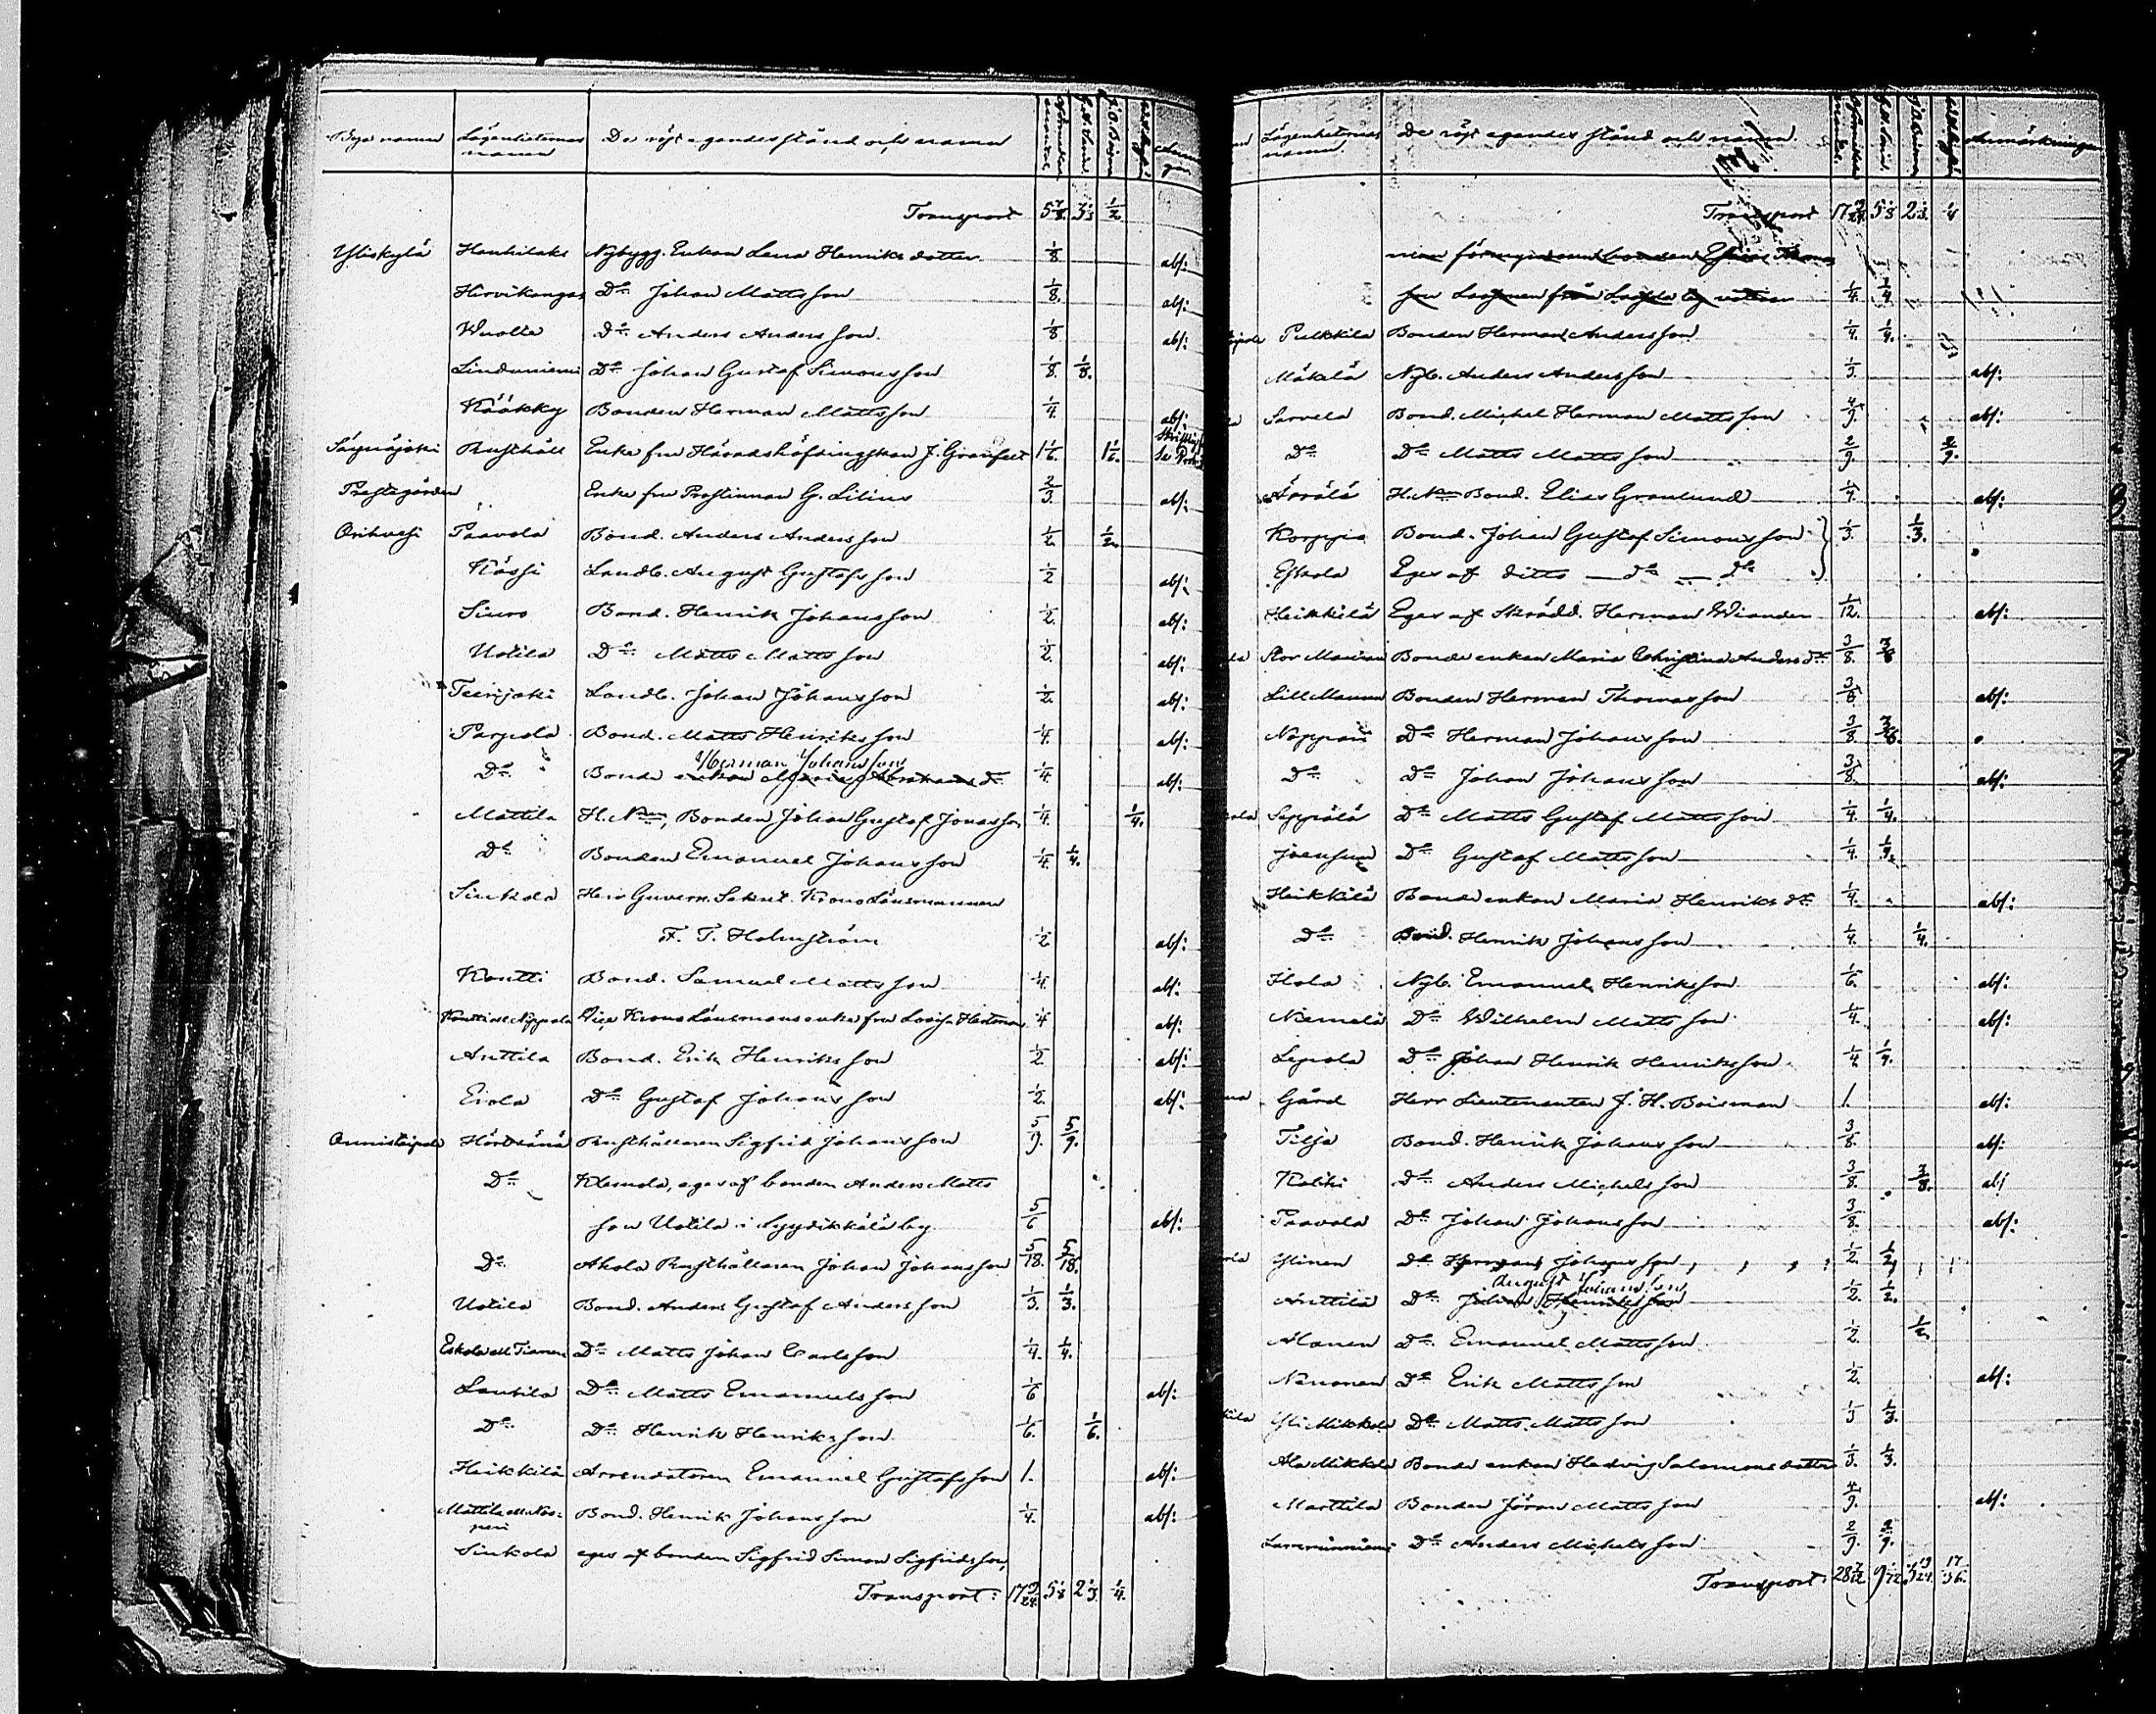 Bya namn Lägenheternas namn De röst egandes stånd och namn
Transport 5 7/8. 3 1/3 1/2.
Yliskylä Hauhilaks Nybygg. Enkan Lena Henriks dotter 1/8 abs:
Hirvikangas Do Johan Mattsson 1/8. abs:
Wuolte Do Anders Andersson. 1/8 abs:
Linduniemi Do Johan Gustaf Simonsson 1/8. 1/8.
Kääkky Bonden Herman Mattsson 1/4. abs:
Säynäjoki Rusthåll Enke fru Häradshöfdingskan J. Granfelt 1 1/6. 1 1/6.
Prestegården Enke fru Prostinnan G. Lilius 2/3. abs:
Orihvesi Paavola Bond. Anders Andersson 1/2. 1/2.
Kässi Landb. August Gustafsson 1/2 abs:
Siuro Bond. Henrik Johansson 1/2. abs:
Uotila Do Matts Mattsson 1/2. abs:
Teerijoki Landb. Johan Johansson 1/2. abs:
Parpola Bond. Matts Henriksson 1/4. abs:
Herman Johansson
Do Bonde enkan Maria Abrahams dr 1/4. abs:
Mattila H. Nmn, Bonden Johan Gustaf Jonasson 1/4. 1/4.
Do Bonden Emanuel Johansson 1/4. 1/4.
Sinkola Herr Guvern. Sekret. Krono Länsmannen
F. T. Holmström 1/2 abs:
Kontti Bond. Samuel Mattsson 1/4. abs:
Kontti ell Nippola Vice Krono Länsmans enke fru Lovisa Hedman 1/4 abs:
Anttila Bond. Erik Henriksson 1/2. abs:
Eiola Do Gustaf Johansson 1/2. abs:
Onnistaipale Rusthållaren Sigfrid Johansson 5/9. 5/9.
Do Klemola, eges af bonden Anders Matts
son Uotila i Syydikkälä by 5/6 abs:
Do Ahola Rusthållaren Johan Johansson 5/18. 5/18.
Uotila Bond. Anders Gustaf Andersson 1/3. 1/3.
Eskola ell Do Matts Johan Carlsson 1/4. 1/4.
Lautila Do Matts Emanuelsson 1/6 abs:
Do Do Henrik Henriksson 1/6. 1/6.
Heikkilä Arrendatoren Emanuel Gustafsson 1. abs:
Mattila ell Kas-
peri Bond. Henrik Johansson 1/4. abs:
Sinkola eges af bonden Sigfrid Simon Sigfridsson,
Transport: 17 19/24. 5 1/8 2 1/3. 1/4.
Lägenheternas namn. De röst egandes stånd och namn. Anmärkningar
Transport 17 19/24. 5 1/8 2 1/3. 1/4
förmyndare bonden Thoms
son från by 1/4. 1/4
Pulkkila Bonden Herman Andersson 1/4. 1/4.
Mäkelä Nyb. Anders Andersson 1/3. abs:
Sarvela Bond. Michel Herman Mattsson 4/9. abs:
Do Do Matts Mattsson 2/9. 2/9.
Äärälä H. Nmn Bond. Elias Granlund 1/4. abs:
Korppi Bond. Johan Gustaf Simonsson 1/3. 1/3.
Eskola Eges af ditto — do — do
Heikkilä Eges af Skrädd. Herman Wiander 1/12. abs:
Stor Maunu Bonde enkan Maria Christina Anders dr 3/8. 3/8
Lill Maunu Bonden Herman Thomasson 3/8. abs:
Noppari Do Herman Johansson 3/8. 3/8.
Do Do Johan Johansson 3/8. abs:
Seppälä Do Matts Gustaf Mattsson 1/4. 1/4.
Joensuu Do Gustaf Mattsson 1/4. 1/4.
Heikkilä Bonde enkan Maria Henriks dr 1/4. abs:
Do Bond. Henrik Johansson 1/4. 1/4.
Hola Nyb. Emanuel Henriksson 1/6. abs:
Niemelä Do Wilhelm Mattsson 1/4. abs:
Lepola Do Johan Henrik Henriksson 1/4. 1/4.
Gård Herr Lieutenanten J. H. Boisman 1. abs:
Tilja Bond. Henrik Johansson 3/8. abs:
Kolkki Do Anders Michelsson 3/8. 3/8. abs
Paavola Do Johan Johansson 3/8. abs:
Ylinen Do Herman Johansson 1/2. 1/2.
August Johansson
Anttila Do Johan Henriksson 1/2. 1/2.
Alanen Do Emanuel Mattsson 1/2. 1/2.
Nänonen Do Erik Mattsson 1/2. abs:
Yli Mikkola Do Matts Mattsson 1/3 1/3.
Ala Mikkola Bonde enkan Hedvig Salomons dotter 1/3. 1/3.
Marttila Bonden Jöran Mattsson 4/9. abs:
Lamminniemi Do Anders Michelsson 2/9. 2/9.
Transport: 28 7/12 9 1/12 3 19/24. 17/36.